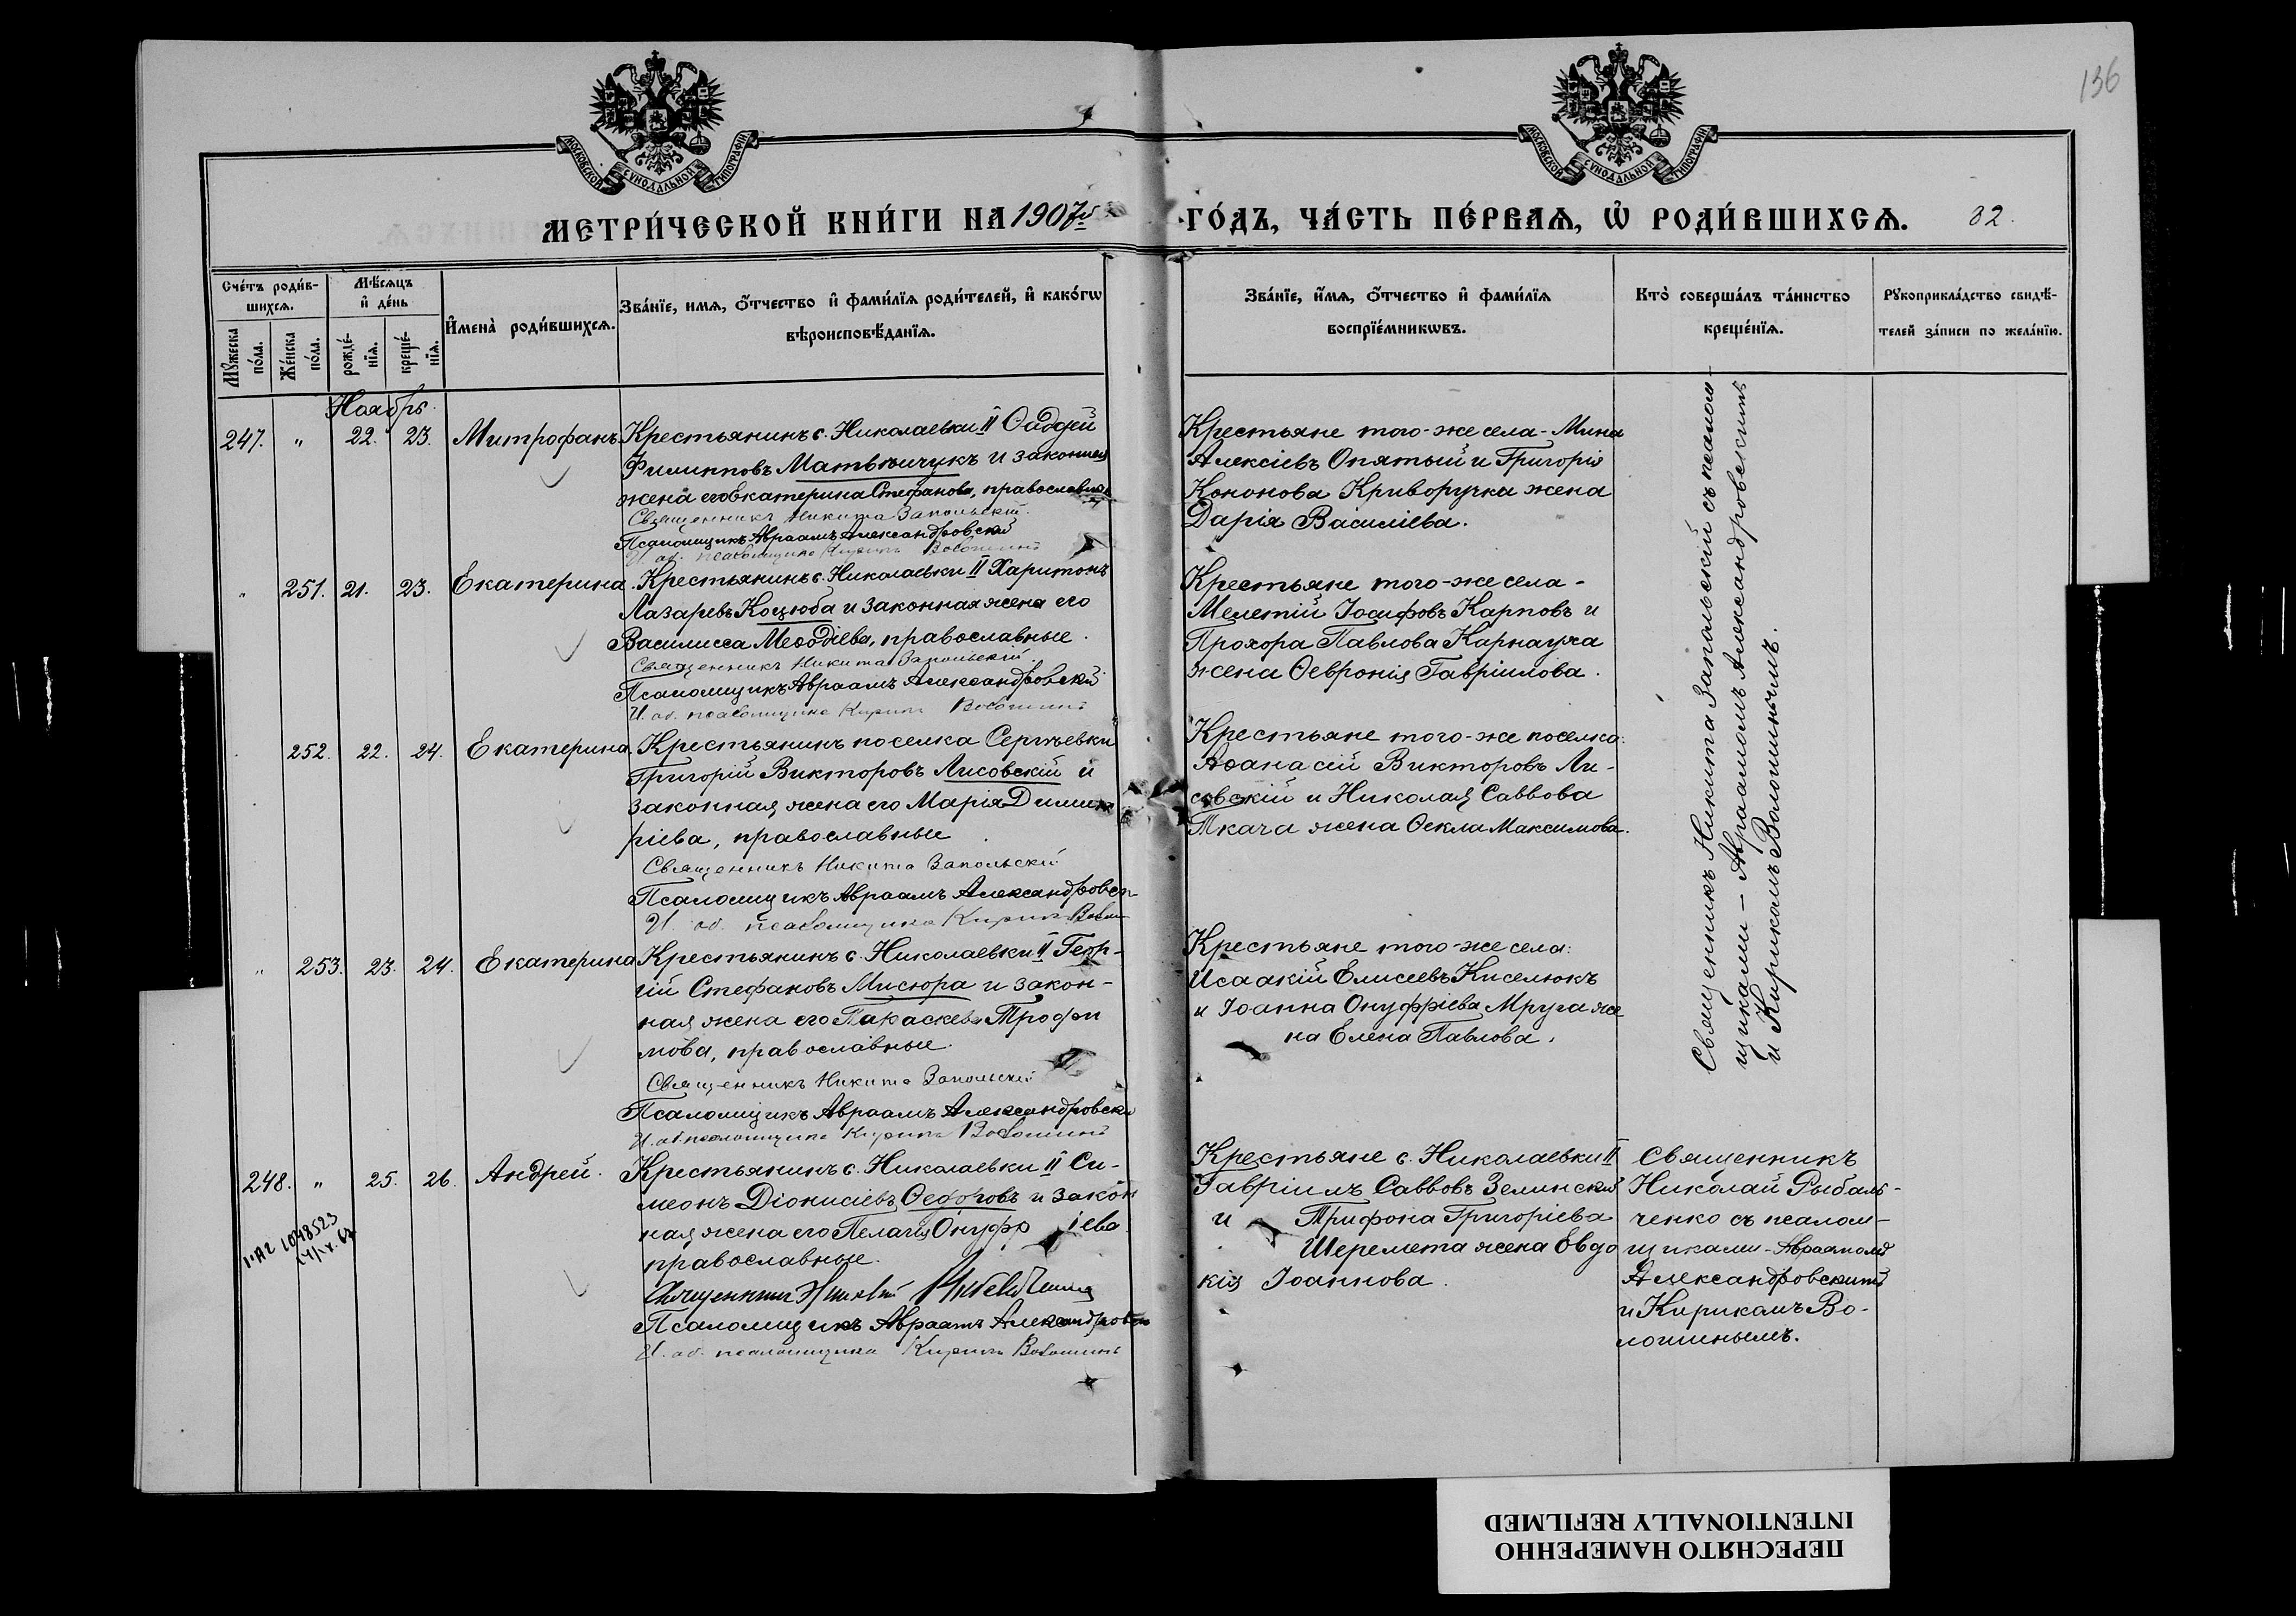 136
МОСКОВСКОЙ СѴНОДАЛЬНОЙ ТИПОГРАФІИ
МОСКОВСКОЙ СѴНОДАЛЬНОЙ ТИПОГРАФІИ
МЕТРИ́ЧЕСКОЙ КНИ́ГИ НА 1907й ГО́ДЪ, ЧА́СТЬ ПЕ́РВАѦ, Ѽ РОДИ́ВШИХСѦ. 82.
Сче́тъ роди́в-
шихсѧ.
Мꙋ́жеска
по́ла.
Же́нска
по́ла.
Мѣ́сѧцъ
и҆ де́нь
рожде́-
нїѧ.
креще́-
нїѧ.
И҆мена̀ роди́вшихсѧ.
Зва́нїе, имѧ, ѻ҆́тчество и҆ фами́лїѧ роди́телей, и҆ како́гѡ
вѣроисповѣ́данїѧ.
Зва́нїе, и҆́мѧ, ѻ҆́тчество и҆ фами́лїѧ
воспрїе́мникѡвъ.
Кто̀ соверша́лъ та́инство
креще́нїѧ.
Рꙋкоприкла́дство свидѣ́-
телей за́писи по жела́нїю.
Ноябрь.
247. " 22. 23. Митрофанъ.
Крестьянинъ с. Николаевки II Ѳаддей
Филипповъ Матвѣичукъ и законная
жена его Екатерина Стефанова, православные
Священникъ Никита Запольскій.
Псаломщикъ Авраамъ Александровскій
И. об. псаломщика Кирикъ Волошинъ
Крестьяне того-же села - Мина
Алексіевъ Опятый и Григорія
Кононова Криворучка жена
Дарія Василіева.
" 251. 21. 23. Екатерина.
Крестьянинъ с. Николаевки II Харитонъ
Лазаревъ Коцюба и законная жена его
Василисса Меѳодіева, православные.
Священникъ Никита Запольскій.
Псаломщикъ Авраамъ Александровскій
И. об. псаломщика Кирикъ Волошинъ
Крестьяне того-же села -
Мелетій Іосифовъ Карповъ и
Прохора Павлова Карнауха
жена Ѳевронія Гавріилова.
252. 22. 24. Екатерина.
Крестьянинъ поселка Сергѣевки
Григорій Викторовъ Лисовскій и
законная жена его Марія Димит
ріева, православные
Священникъ Никита Запольскій
Псаломщикъ Авраамъ Александровск
И. об. псаломщика Кирикъ Волош
Крестьяне того-же поселка:
Аѳанасій Викторовъ Ли-
совскій и Николая Саввова
Ткача жена Ѳекла Максимова.
" 253. 23. 24. Екатерина
Крестьянинъ с. Николаевки II Геор-
гій Стефановъ Мисюра и закон-
ная жена его Параскева Трофи
мова, православные.
Священникъ Никита Запольскій
Псаломщикъ Авраамъ Александровскі
И. об. псаломщика Кирикъ Волошинъ
Крестьяне того-же села:
Исаакій Елисеевъ Киселюкъ
и Іоанна Онуфріева Мруга же
на Елена Павлова.
Священникъ Никита Запольскій съ псалом-
щиками - Авраамомъ Александровскимъ
и Кирикомъ Волошинымъ.
248. " 25. 26. Андрей.
Крестьянинъ с. Николаевки II Си-
меонъ Діонисіевъ Ѳедоровъ и закон
ная жена его Пелагія Онуфріева
православные.
Священникъ Николай Рыбальченко
Псаломщикъ Авраамъ Александровск
И. об. псаломщика Кирикъ Волошинъ
Крестьяне с. Николаевки II
Гавріилъ Саввовъ Зелинский
и Трифона Григоріева
Шеремета жена Евдо
кія Іоаннова.
Священникъ
Николай Рыбаль-
ченко съ псалом-
щиками - Авраамомъ
Александровскимъ
и Кирикомъ Во-
лошинымъ.
1048523
ПЕРЕСНЯТО НАМЕРЕННО
INTENTIONALLY REFILMED